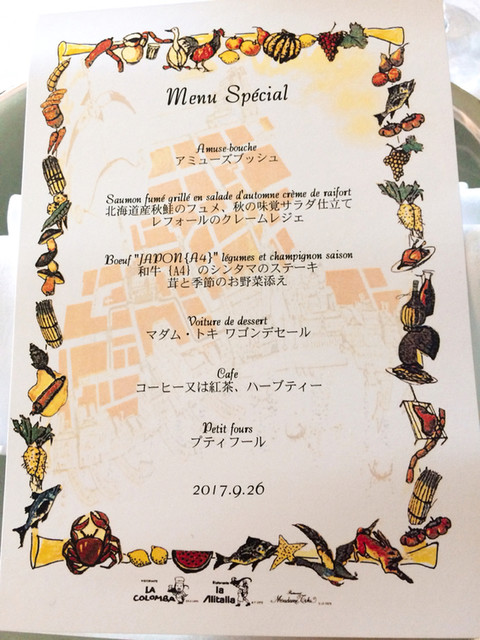 Menu Spécial
Amuse-bouche
アミューズブッシュ
Saumon fumé grillé en salade d'automne crème de raifort
北海道産秋鮭のフュメ、秋の味覚サラダ仕立て
レフォールのクレームレジェ
Boeuf "JAPON{A4}" légumes et champignon saison
和牛{A4}のシンタマのステーキ
茸と季節のお野菜添え
Voiture de dessert
マダム・トキ ワゴンデセール
Cafe
コーヒー又は紅茶、ハーブティー
Petit fours
プティフール
2017.9.26
LA COLOMBA
Ristorante la Alitalia
Madame Toki